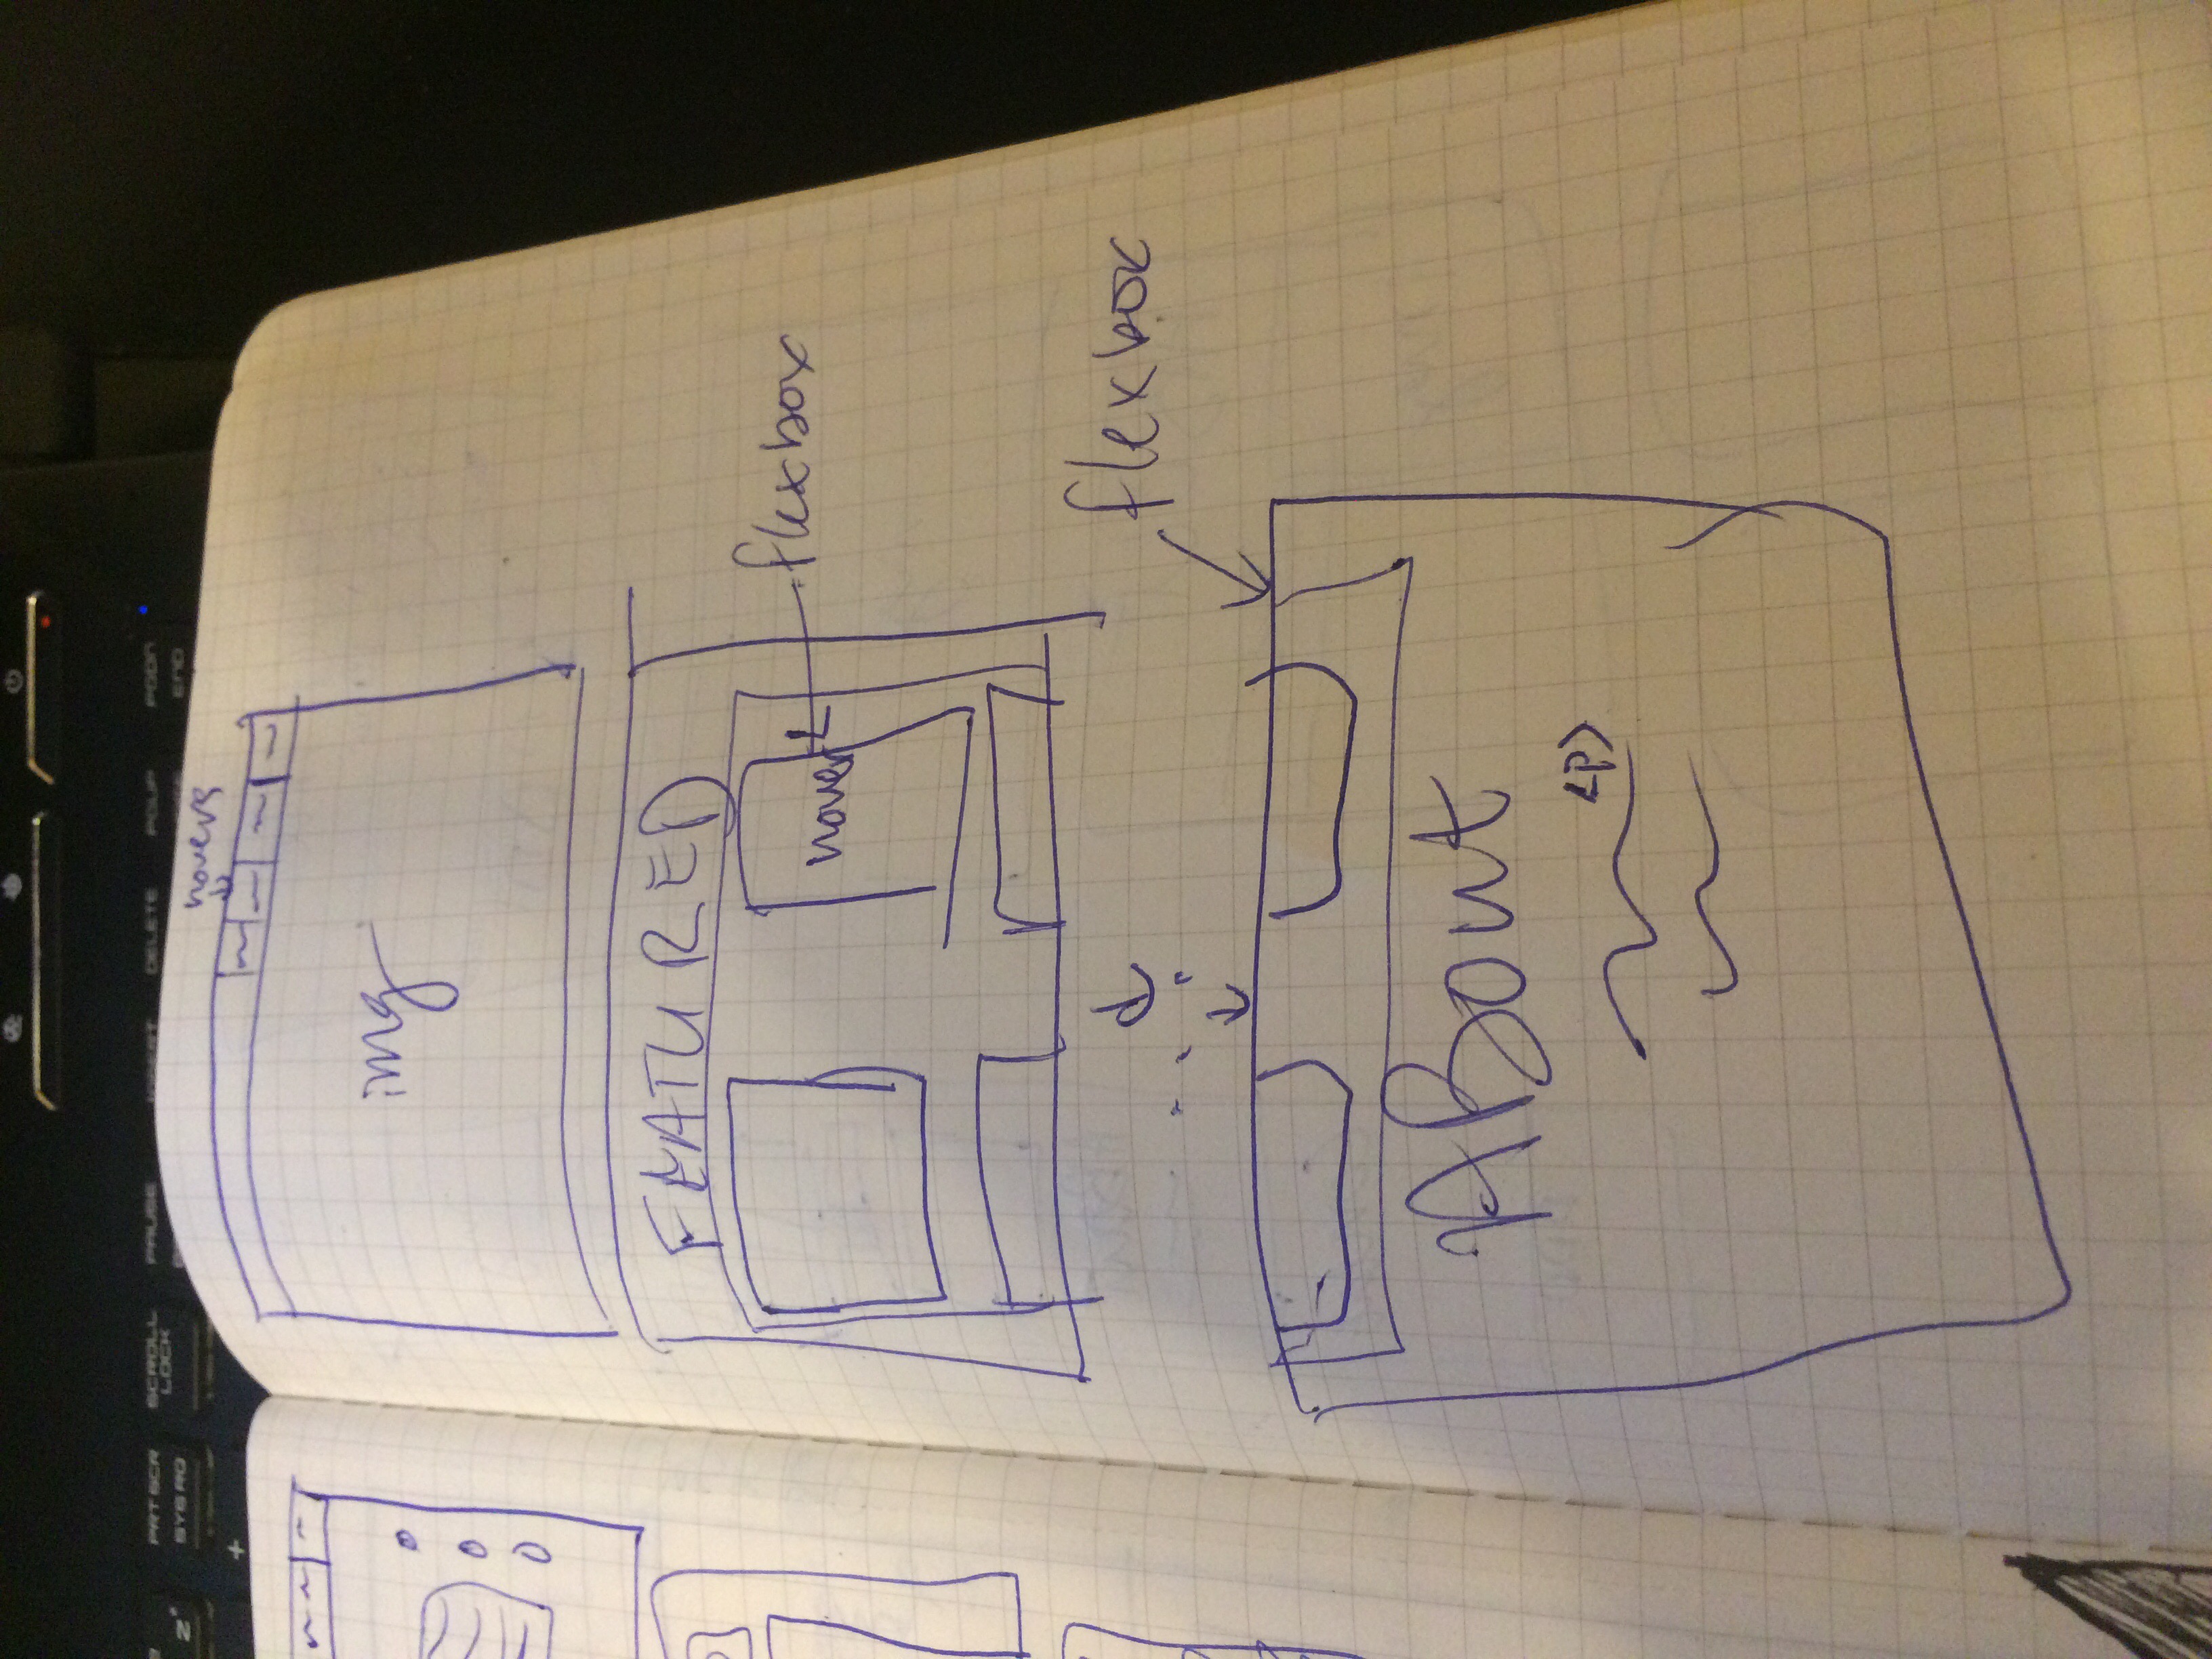 PRTSCR
SYSRQ
SCROLL
LOCK
PAUSE
INSERT
DELETE
PGUP
PGDN
END
hovers
img
FEATURED
hover
flexbox
flexbox
ABout
<p>